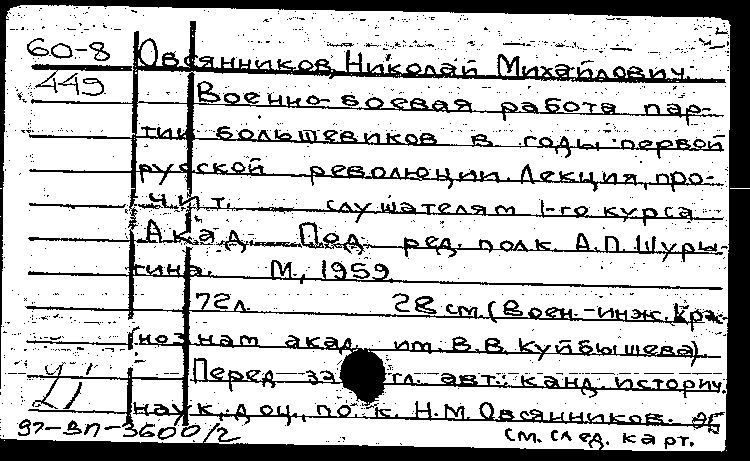 60-8 Овсянников, Николай Михайлович.
449 Военно-боевая работа пар-
тии большевиков в годы первой
русской революции. Лекция, про-
чит. слушателям 1-го курса
Акад. Под ред. полк. А.П. Шуры-
гина. М., 1959.
72 л. 28 см. (Воен.-инж. Кра-
нознам акад. им. В.В. Куйбышева).
Перед загл. авт.: канд. историч.
наук, доц., полк. Н.М. Овсянников.
97-ЗП-3600/2 см. след. карт.